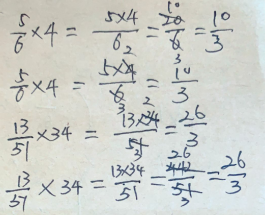 5/6 × 4 = 5×4/6 2 = 10 20/6 3 = 10/3
5/6 × 4 = 5×4/6 3 2 = 10/3
13/51 × 34 = 13×34/51 3 = 26/3
13/51 × 34 = 13×34/51 = 26 442/51 3 = 26/3